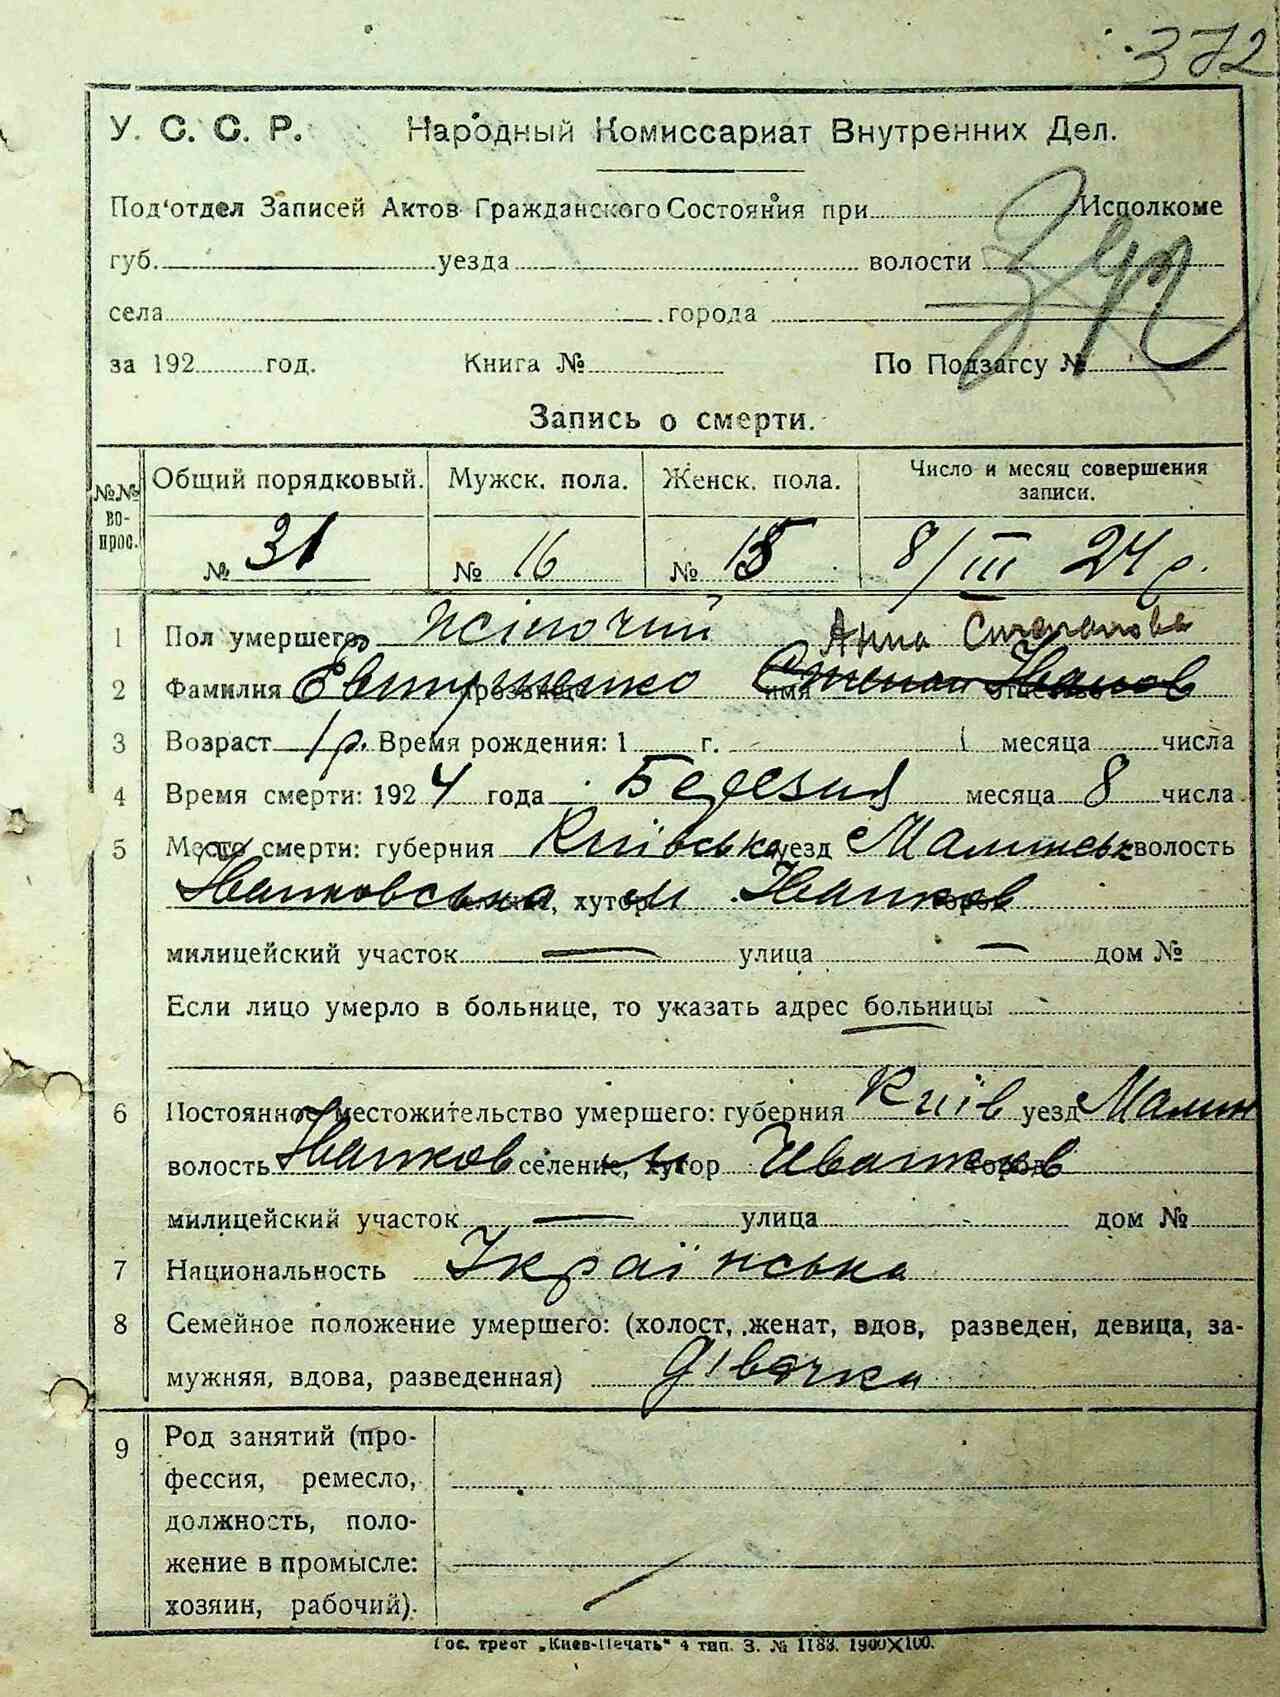 372
У. С. С. Р. Народный Комиссариат Внутренних Дел.
Под‘отдел Записей Актов Гражданского Состояния при Исполкоме
губ. уезда волости
села города
за 192 год. Книга № По Подзагсу №
Запись о смерти.
№№ во-прос. Общий порядковый. Мужск. пола. Женск. пола. Число и месяц совершения записи.
№ 31 № 16 № 15 8/III 24 р.
Анна Степанова
1 Пол умершего жіночий
2 Фамилия Евтушенко прозвище имя Степан отчество Иванов
3 Возраст 1 р. Время рождения: 1 г. месяца числа
4 Время смерти: 1924 года Березня месяца 8 числа
5 Место смерти: губерния Київська уезд Малинськ волость
Иванковська хутор м. Иванков
милицейский участок — улица — дом №
Если лицо умерло в больнице, то указать адрес больницы
6 Постоянное местожительство умершего: губерния Київ уезд Малин
волость Иванков селение, хутор м Иванков город
милицейский участок — улица дом №
7 Национальность Українська
8 Семейное положение умершего: (холост, женат, вдов, разведен, девица, за-
мужняя, вдова, разведенная) дівочка
9 Род занятий (про-
фессия, ремесло,
должность, поло-
жение в промысле:
хозяин, рабочий).
Гос. трест „Киев-Печать“ 4 тип. З. № 1183. 1900X100.